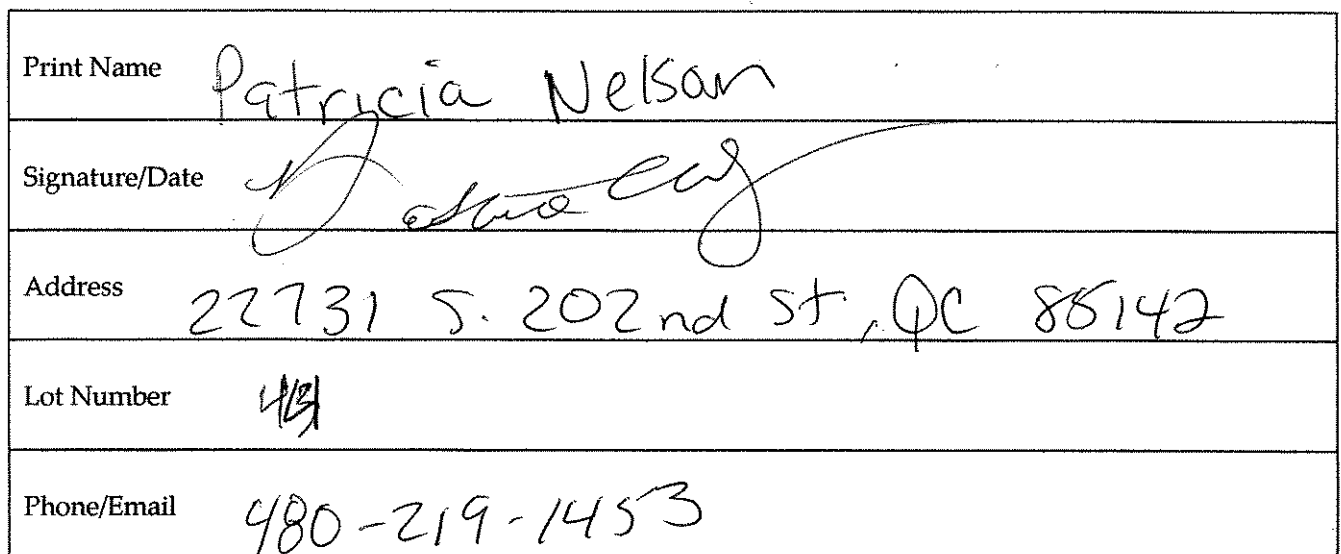 Print Name Patricia Nelson
Signature/Date
Address 22731 S. 202nd St, QC 85142
Lot Number
Phone/Email 480-219-1453